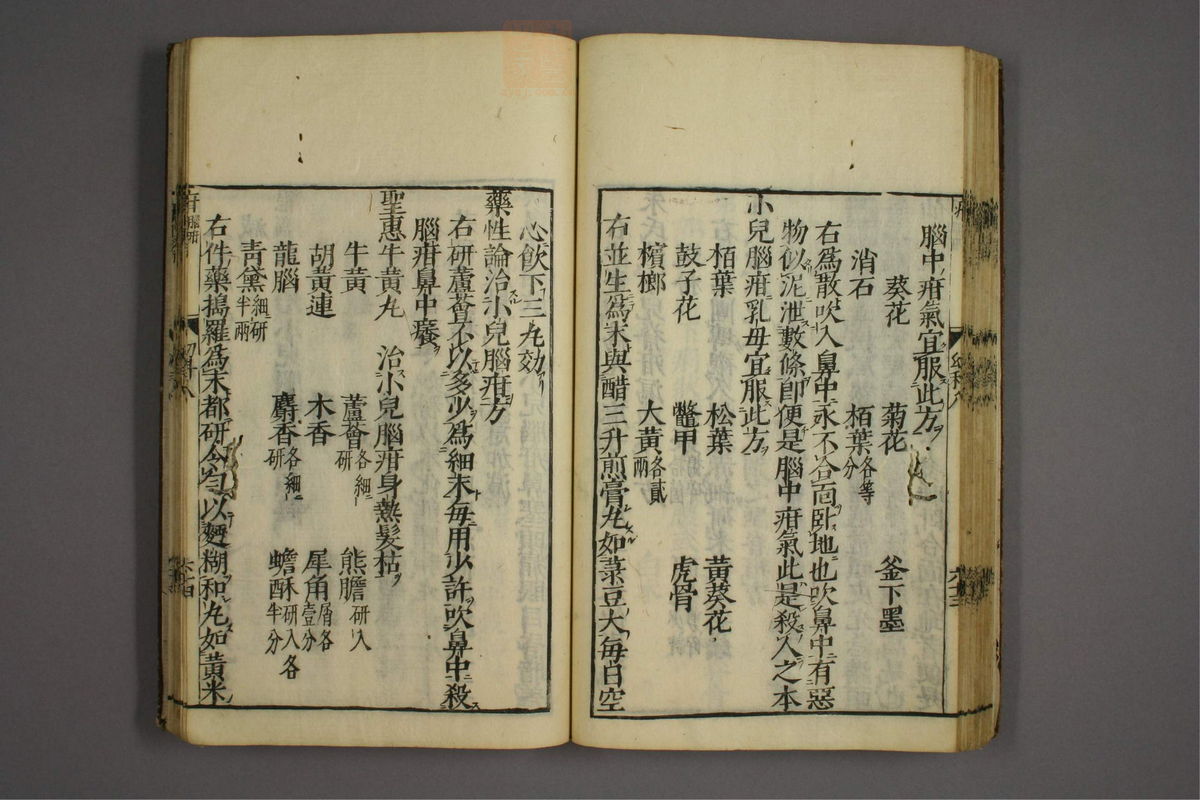 腦中疳氣宜服此方
葵花 菊花 釜下墨
消石 栢葉各等分
右爲散吹入鼻中永不合面卧地也吹鼻中有惡
物似泥泄數條卽便是腦中疳氣此是殺人之本
小兒腦疳乳母宜服此方
栢葉 松葉 黃葵花
鼓子花 鼈甲 虎骨
檳榔 大黃各貳兩
右並生爲末與醋三升煎膏丸如菉豆大每日空
心飲下三丸効
藥性論治小兒腦疳方
右研蘆薈不以多少爲細末每用少許吹鼻中殺
腦疳鼻中癢
聖惠牛黃丸 治小兒腦疳身熱髮枯
牛黃 蘆薈各細研 熊膽研入
胡黃連 木香 犀角屑各壹分
龍腦 麝香各細研 蟾酥研入各半分
靑黛細研半兩
右件藥搗羅爲末都研令勻以麪糊和丸如黃米